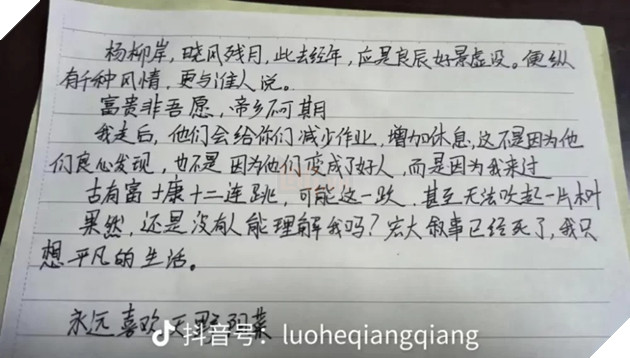 杨柳岸,晓风残月,此去经年,应是良辰好景虚设。便纵
有千种风情,更与谁人说。
富贵非吾愿,帝乡不可期
我走后,他们会给你们减少作业,增加休息,这不是因为他
们良心发现,也不是因为他们变成了好人,而是因为我来过
古有富士康十二连跳,可能这一跃,甚至无法吹起一片树
果然,还是没有人能理解我吗?宏大叙事已经死了,我只
想平凡的生活。
永远喜欢天野阳菜
抖音号:luoheqiangqiang